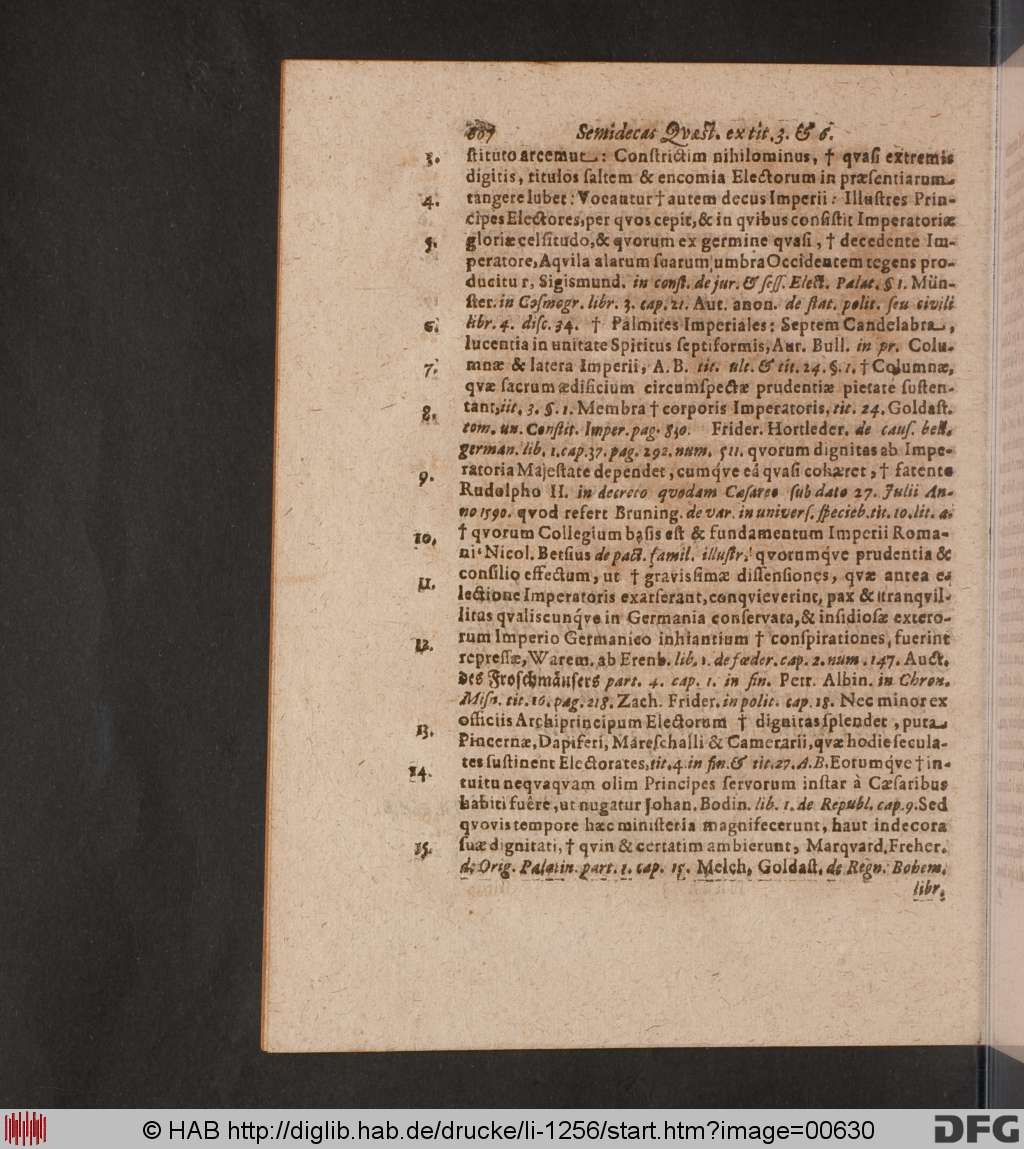 607 Semidecas Qvæst. ex tit. 3. & 6.
3. ſtituto arcemur: Conſtrictim nihilominus, † qvaſi extremis
digitis, titulos ſaltem & encomia Electorum in præſentiarum
4. tangere lubet: Vocantur † autem decus Imperii: Illuſtres Prin-
cipes Electores, per qvos cepit, & in qvibus conſiſtit Imperatoriæ
5. gloriæ celſitudo, & qvorum ex germine qvaſi, † decedente Im-
peratore, Aqvila alarum ſuarum umbra Occidentem tegens pro-
ducitur, Sigismund. in conſt. de jur. & ſeſſ. Elect. Palat. § 1. Mün-
ſter. in Coſmogr. libr. 3. cap. 21. Aut. anon. de ſtat. polit. ſeu civili
6. libr. 4. diſc. 34. † Palmites Imperiales: Septem Candelabra,
lucentia in unitate Spiritus ſeptiformis, Aur. Bull. in pr. Colu-
7. mnæ & latera Imperii, A. B. tit. ult. & tit. 24. §. 1. † Columnæ,
qvæ ſacrum ædificium circumſpectæ prudentiæ pietate ſuſten-
8. tant, tit. 3. §. 1. Membra † corporis Imperatoris, tit. 24. Goldaſt.
tom. un. Conſtit. Imper. pag. 830. Frider. Hortleder. de cauſ. bell.
german. lib. 1. cap. 37. pag. 292. num. 511. qvorum dignitas ab Impe-
9. ratoria Majeſtate dependet, cumqve eâ qvaſi cohæret, † fatente
Rudolpho II. in decreto quodam Cæſareo ſub dato 27. Julii An-
no 1590. qvod refert Bruning. de var. in univerſ. ſpecieb. tit. 10. lit. a.
10. † qvorum Collegium baſis eſt & fundamentum Imperii Roma-
ni. Nicol. Betſius de pact. famil. illuſtr. qvorumqve prudentia &
11. conſilio effectum, ut † gravisſimæ diſſenſiones, qvæ antea ex
lectione Imperatoris exarſerant, conqvieverint, pax & tranqvil-
litas qvaliscunqve in Germania conſervata, & inſidioſæ extero-
12. rum Imperio Germanico inhiantium † conſpirationes, fuerint
repreſſæ, Warem. ab Erenb. lib. 1. de fœder. cap. 2. num. 147. Auct.
des Froſchmäuſers part. 4. cap. 1. in fin. Petr. Albin. in Chron.
Miſn. tit. 16. pag. 218. Zach. Frider. in polit. cap. 18. Nec minor ex
13. officiis Archiprincipum Electorum † dignitas ſplendet, puta
Pincernæ, Dapiferi, Mareſchalli & Camerarii, qvæ hodie ſecula-
14. tes ſuſtinent Electorates, tit. 4. in fin. & tit. 27. A. B. Eorumqve † in-
tuitu neqvaqvam olim Principes ſervorum inſtar à Cæſaribus
habiti fuêre, ut nugatur Johan. Bodin. lib. 1. de Republ. cap. 9. Sed
qvovis tempore hæc miniſteria magnifecerunt, haut indecora
15. ſuæ dignitati, † qvin & certatim ambierunt, Marqvard. Freher.
de Orig. Palatin. part. 1. cap. 15. Melch. Goldaſt. de Regn. Bohem.
libr.
© HAB http://diglib.hab.de/drucke/li-1256/start.htm?image=00630
DFG